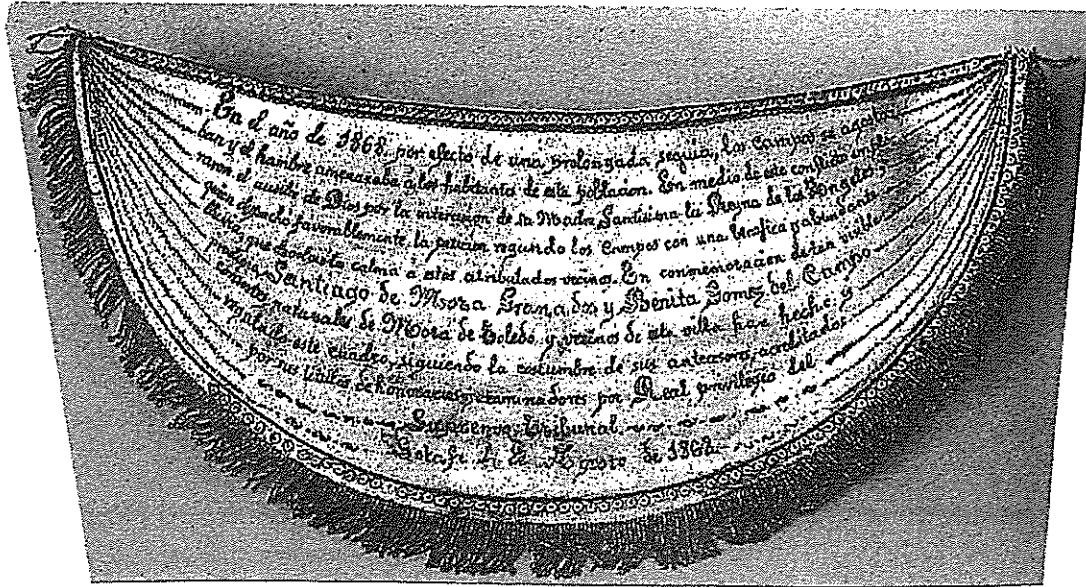 En el año de 1868, por efecto de una prolongada sequia, los Campos se agosta-
ban y el hambre amenazaba a los habitantes de esta poblacion. En medio de este conflicto implo-
raron el ausilio de Dios por la intercesion de su Madre Santisima la Reyna de los Angeles,
quien despacho favorablemente la peticion regando los Campos con una benefica y abundante
lluvia, que la calma a estos atribulados vecinos. En conmemoracion de tan visible
prodigio, Santiago de Mora Granados y Benita Gomez del Campo
consortes naturales de Mora de Toledo, y vecinos de esta villa han hecho y
regalado este cuadro, siguiendo la costumbre de sus antecesores, acreditados
por sus titulos de y examinadores por Real privilegio del
Supremo Tribunal.
Getafe de Agosto de 1868.